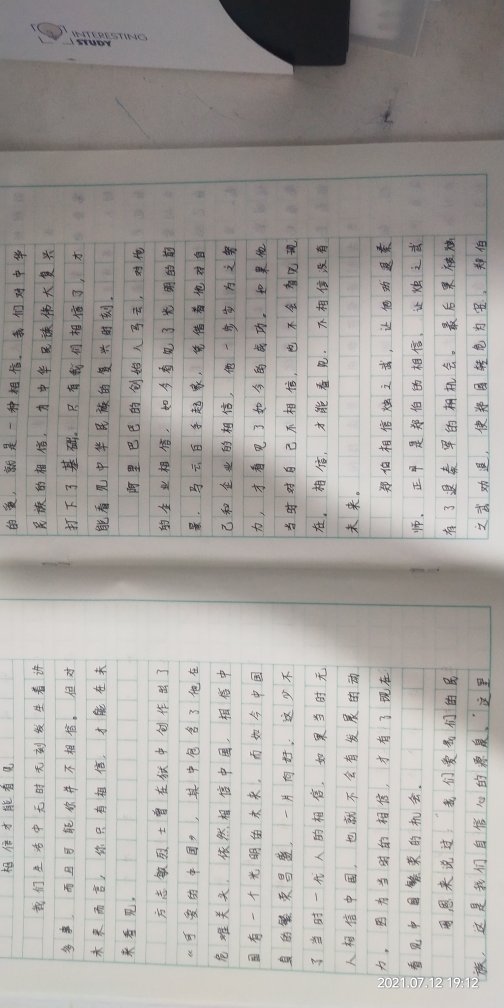 相信才能看见
我们生活中无时无刻发生着许
多事，而且可能你并不相信。但对
未来而言，你只有相信，才能在未
来看见。
方志敏烈士曾在狱中创作出了
《可爱的中国》，其中包含了他在
危难关头，依然相信中国，相信中
国有一个光明的未来，而如今中国
真的繁荣昌盛，一片向好，这少不
了当时一代人的相信，如果当时无
人相信中国，也就不会有发展的动
力。因为当时的相信，才有了现在
看见中国繁荣的机会。
周恩来说过："我们爱我们的民
族，这是我们自信心的源泉。"这里
的爱，就是一种相信。我们对中华
民族的相信，为中华民族伟大复兴
打下了基础。只有我们相信了，才
能看见中华民族的复兴时刻。
阿里巴巴的创始人马云，对他
的企业相信，如今看见了光明的前
景，马云白手起家，凭借着他对自
己和企业的相信，他一步步为之努
力，才看见了如今的成功。如果他
当时对自己不相信，也不会看见现
在。相信，才能看见，不相信没有
未来。
郑伯相信烛之武，让他劝退秦
师。正是郑伯的相信，让烛之武
有了退秦军的机会。最后果被烛
之武劝退，使郑国转危为安。郑伯
INTERESTING
STUDY
2021.07.12 19:12